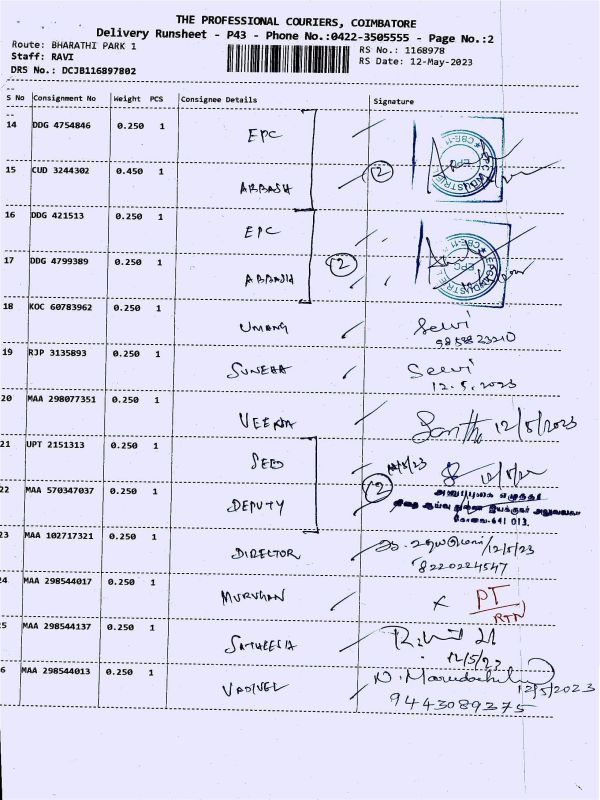 THE PROFESSIONAL COURIERS, COIMBATORE
Delivery Runsheet - P43 - Phone No.:0422-3505555 - Page No.:2
Route: BHARATHI PARK 1 RS No.: 1168978
Staff: RAVI RS Date: 12-May-2023
DRS No.: DCJB116897802
S No Consignment No Weight PCS Consignee Details Signature
14 DDG 4754846 0.250 1 EPC
15 CUD 3244302 0.450 1 ABBASH 2
16 DDG 421513 0.250 1 EPC
17 DDG 4799389 0.250 1 ABBASH 2
18 KOC 60783962 0.250 1 UMANG Selvi
19 RJP 3135893 0.250 1 SUNEHA Selvi
12.5.2023
20 MAA 298077351 0.250 1 VEENA 12/5/2023
21 UPT 2151313 0.250 1 SEED
22 MAA 570347037 0.250 1 DEPUTY 2
கோவை-641 013.
23 MAA 102717321 0.250 1 DIRECTOR 12/5/23
8220224547
24 MAA 298544017 0.250 1 MURUGAN x PT
RTN
5 MAA 298544137 0.250 1 SATHEESH
12/5/23
6 MAA 298544013 0.250 1 VADIVEL 12/5/2023
9443089375